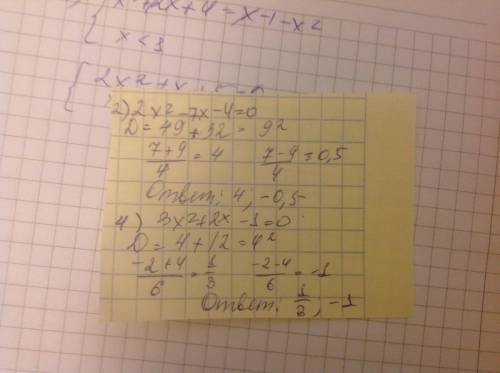 x²+2x+4=x-1-x²
x<3
2x²+x
2) 2x²-7x-4=0
D=49+32=9²
(7+9)/4=4 (7-9)/4=0,5
Ответ: 4; -0,5
4) 3x²+2x-1=0
D=4+12=4²
(-2+4)/6=1/3 (-2-4)/6=-1
Ответ: 1/3; -1